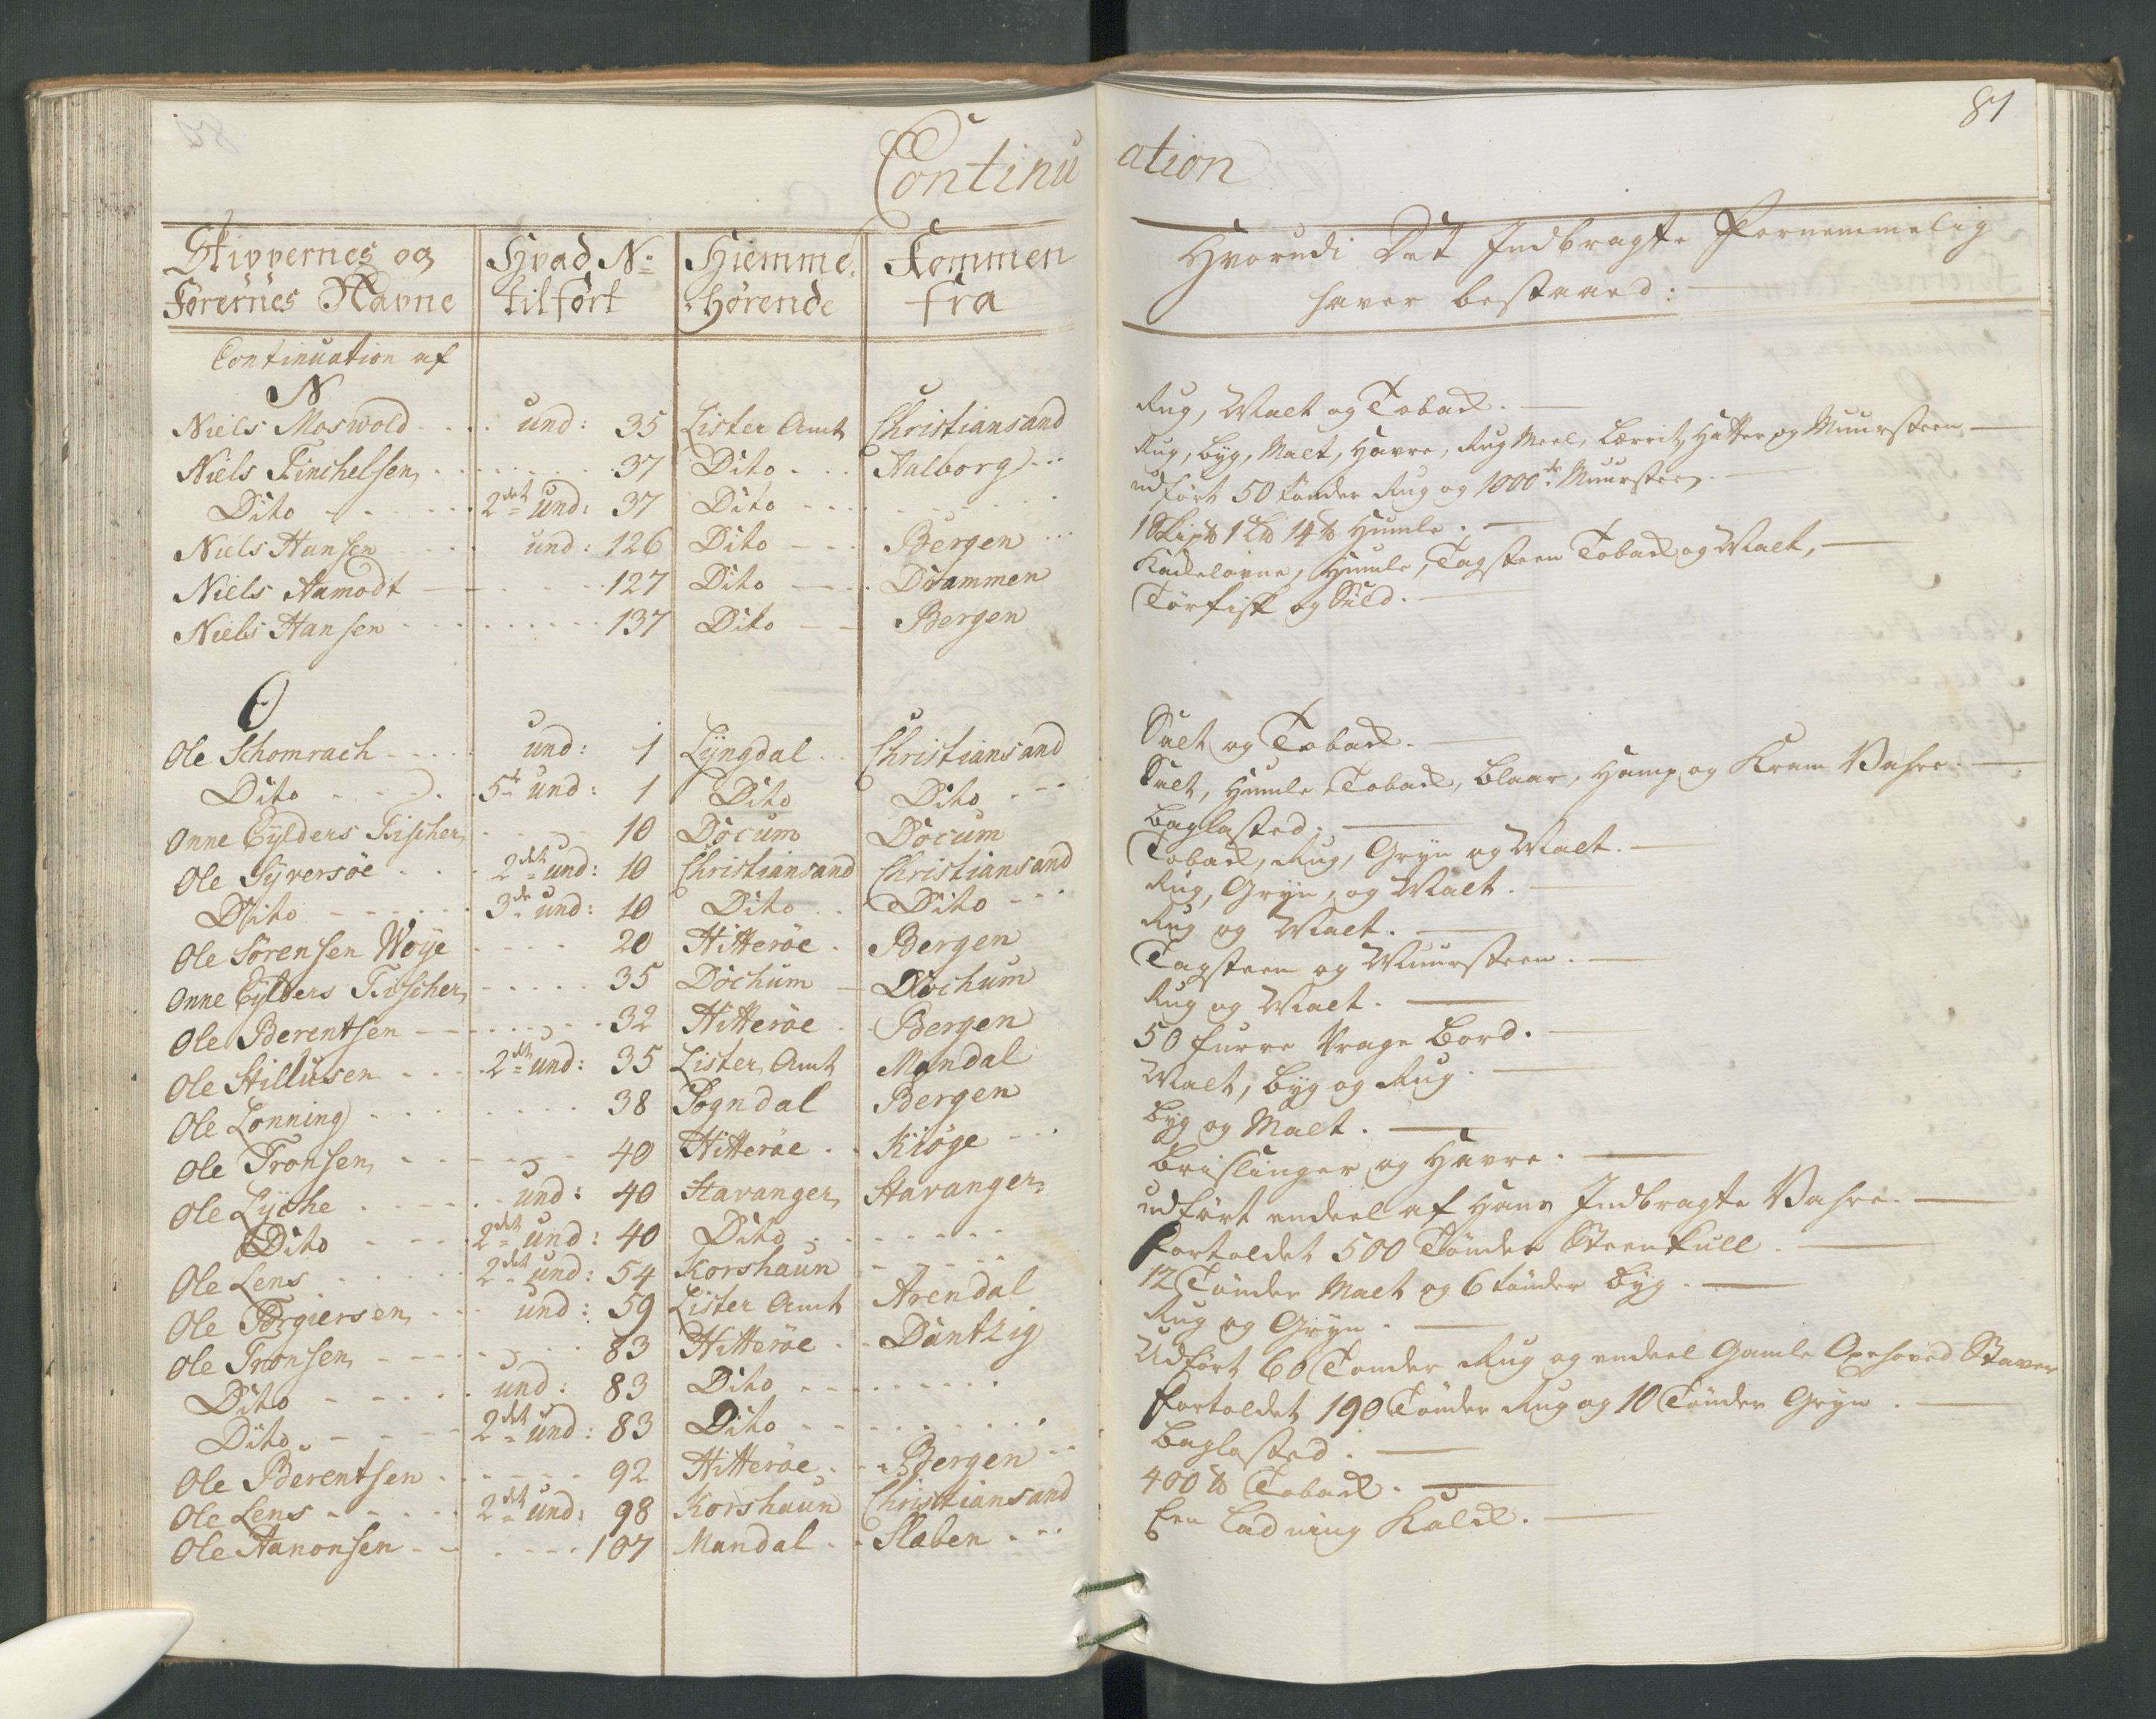 Continuation
81
Skippernes og Förernes Navne | Hvad No tilfört | Hiemme hörende | Kommen fra | Hvorudi Det Indbragte Fornemmelig haver bestaaed:
Continuation af
N
Niels Moswold | und: 35 | Lister Amt | Christiansand | Rug, Malt og Toback.
Niels Finchelsen | 37 | Dito | Aalborg | Rug, Byg, Malt, Havre, Rug Meel, Lærrit, Hatter og Muursteen
Dito | 2det und: 37 | Dito | udfört 50 tönder Rug og 1000de Muursteen.
Niels Hansen | und: 126 | Dito | Bergen | 1 Skip℔ 1 L℔ 14 ℔ Humle.
Niels Aamodt | 127 | Dito | Drammen | Kackelovne, Humle, Tagsteen Toback og Malt,
Niels Hansen | 137 | Dito | Bergen | Törfisk og Sild.
O
Ole Schomrach | und: 1 | Lyngdal | Christiansand | Salt og Toback.
Dito | 5te und: 1 | Dito | Dito | Salt, Humle Toback, Blaar, Hamp og Kram Vahre.
Onne Eylders Fischer | 10 | Docum | Docum | Baglasted.
Ole Syversöe | 2det und: 10 | Christiansand | Christiansand | Toback, Rug, Gryn og Malt.
Dito | 3de und: 10 | Dito | Dito | Rug, Gryn, og Malt.
Ole Sörensen Woye | 20 | Hitteröe | Bergen | Rug og Malt.
Onne Eylders Fischer | 35 | Dochum | Dochum | Tagsteen og Muursteen.
Ole Berentsen | 32 | Hitteröe | Bergen | Rug og Malt.
Ole Hillusen | 2det und: 35 | Lister Amt | Mandal | 50 furre Vrage Bord.
Ole Lonning | 38 | Sogndal | Bergen | Malt, Byg og Rug.
Ole Tronsen | 40 | Hitteröe | Kiöge | Byg og Malt.
Ole Lyche | und: 40 | Stavanger | Stavanger | Brislinger og Havre.
Dito | 2det und: 40 | Dito | udfört endeel af Hans Indbragte Vahre.
Ole Lens | 2det und: 54 | Korshaun | Fortoldet 500 Tönder Steenkull.
Ole Torgiersen | und: 59 | Lister Amt | Arendal | 12 Tönder Malt og 6 tönder Byg.
Ole Tronsen | 83 | Hitteröe | Dantzig | Rug og Gryn.
Dito | und: 83 | Dito | Udfört 60 Tönder Rug og endeel Gamle Oxehoved Staver
Dito | 2det und: 83 | Dito | Fortoldet 190 Tönder Rug og 10 Tönder Gryn.
Ole Berentsen | 92 | Hitteröe | Bergen | Baglasted.
Ole Lens | 2det und: 98 | Korshaun | Christiansand | 400 ℔ Toback.
Ole Aanonsen | 107 | Mandal | Slaben | Een Ladning Kalck.